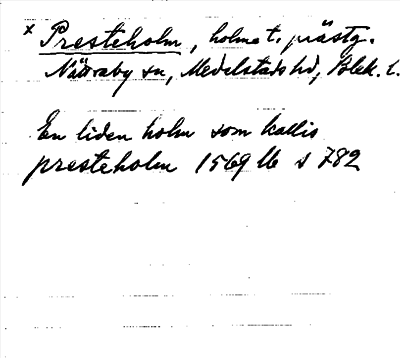 x Presteholm, holme t. prästg.
Nättraby sn, Medelstads hd, Blek. l.
En liden holm som kallis
presteholm 1569 Ub s 782